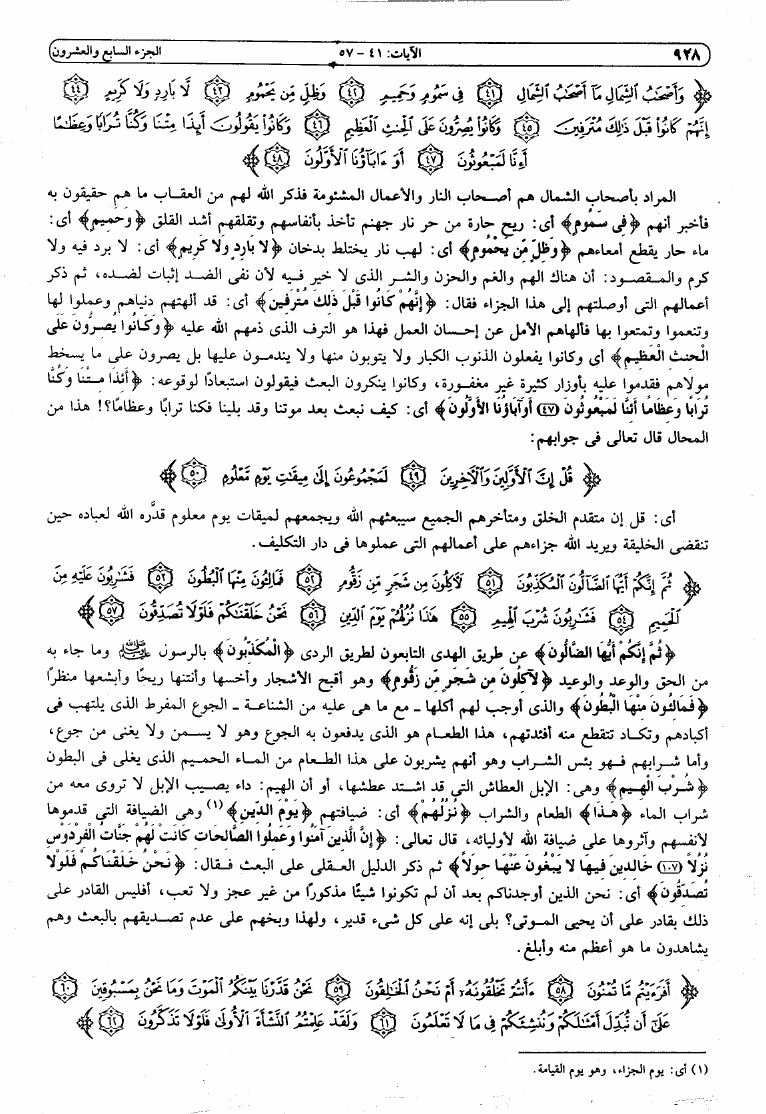 ٩٢٨ الآيات: ٤١ - ٥٧ الجزء السابع والعشرون
﴿ وَأَصْحَٰبُ ٱلشِّمَالِ مَآ أَصْحَٰبُ ٱلشِّمَالِ ٤١ فِى سَمُومٍ وَحَمِيمٍ ٤٢ وَظِلٍّ مِّن يَحْمُومٍ ٤٣ لَّا بَارِدٍ وَلَا كَرِيمٍ ٤٤
إِنَّهُمْ كَانُوا۟ قَبْلَ ذَٰلِكَ مُتْرَفِينَ ٤٥ وَكَانُوا۟ يُصِرُّونَ عَلَى ٱلْحِنثِ ٱلْعَظِيمِ ٤٦ وَكَانُوا۟ يَقُولُونَ أَئِذَا مِتْنَا وَكُنَّا تُرَابًا وَعِظَٰمًا
أَءِنَّا لَمَبْعُوثُونَ ٤٧ أَوَ ءَابَآؤُنَا ٱلْأَوَّلُونَ ٤٨ ﴾
المراد بأصحاب الشمال هم أصحاب النار والأعمال المشئومة فذكر الله لهم من العقاب ما هم حقيقون به
فأخبر أنهم ﴿فِي سَمُومٍ﴾ أى: ريح حارة من حر نار جهنم تأخذ بأنفاسهم وتقلقهم أشد القلق ﴿وَحَمِيمٍ﴾ أى:
ماء حار يقطع أمعاءهم ﴿وَظِلٍّ مِّن يَحْمُومٍ﴾ أى: لهب نار يختلط بدخان ﴿لا بَارِدٍ ولا كَرِيمٍ﴾ أى: لا برد فيه ولا
كرم والمقصود: أن هناك الهم والغم والحزن والشر الذى لا خير فيه لأن نفى الضد إثبات لضده، ثم ذكر
أعمالهم التى أوصلتهم إلى هذا الجزاء فقال: ﴿إِنَّهُمْ كَانُوا قَبْلَ ذَلِكَ مُتْرَفِينَ﴾ أى: قد ألهتهم دنياهم وعملوا لها
وتنعموا وتمتعوا بها فألهاهم الأمل عن إحسان العمل فهذا هو الترف الذى ذمهم الله عليه ﴿وَكَانُوا يُصِرُّونَ عَلَى
الْحِنثِ الْعَظِيمِ﴾ أى وكانوا يفعلون الذنوب الكبار ولا يتوبون منها ولا يندمون عليها بل يصرون على ما يسخط
مولاهم فقدموا عليه بأوزار كثيرة غير مغفورة، وكانوا ينكرون البعث فيقولون استبعادًا لوقوعه: ﴿أَئِذَا مِتْنَا وَكُنَّا
تُرَابًا وَعِظَامًا أَئِنَّا لَمَبْعُوثُونَ (٤٧) أَوَآبَاؤُنَا الأَوَّلُونَ﴾ أى: كيف نبعث بعد موتنا وقد بلينا فكنا ترابًا وعظامًا؟! هذا من
المحال قال تعالى فى جوابهم:
﴿ قُلْ إِنَّ ٱلْأَوَّلِينَ وَٱلْءَاخِرِينَ ٤٩ لَمَجْمُوعُونَ إِلَىٰ مِيقَٰتِ يَوْمٍ مَّعْلُومٍ ٥٠ ﴾
أى: قل إن متقدم الخلق ومتأخرهم الجميع سيبعثهم الله ويجمعهم لميقات يوم معلوم قدَّره الله لعباده حين
تنقضى الخليقة ويريد الله جزاءهم على أعمالهم التى عملوها فى دار التكليف.
﴿ ثُمَّ إِنَّكُمْ أَيُّهَا ٱلضَّآلُّونَ ٱلْمُكَذِّبُونَ ٥١ لَءَاكِلُونَ مِن شَجَرٍ مِّن زَقُّومٍ ٥٢ فَمَالِـُٔونَ مِنْهَا ٱلْبُطُونَ ٥٣ فَشَٰرِبُونَ عَلَيْهِ مِنَ
ٱلْحَمِيمِ ٥٤ فَشَٰرِبُونَ شُرْبَ ٱلْهِيمِ ٥٥ هَٰذَا نُزُلُهُمْ يَوْمَ ٱلدِّينِ ٥٦ نَحْنُ خَلَقْنَٰكُمْ فَلَوْلَا تُصَدِّقُونَ ٥٧ ﴾
﴿ثُمَّ إِنَّكُمْ أَيُّهَا الضَّالُّونَ﴾ عن طريق الهدى التابعون لطريق الردى ﴿الْمُكَذِّبُونَ﴾ بالرسول ﷺ وما جاء به
من الحق والوعد والوعيد ﴿لآكِلُونَ مِن شَجَرٍ مِّن زَقُّومٍ﴾ وهو أقبح الأشجار وأخسها وأنتنها ريحًا وأبشعها منظرًا
﴿فَمَالِئُونَ مِنْهَا الْبُطُونَ﴾ والذى أوجب لهم أكلها ـ مع ما هى عليه من الشناعة ـ الجوع المفرط الذى يلتهب فى
أكبادهم وتكاد تتقطع منه أفئدتهم، هذا الطعام هو الذى يدفعون به الجوع وهو لا يسمن ولا يغنى من جوع،
وأما شرابهم فهو بئس الشراب وهو أنهم يشربون على هذا الطعام من الماء الحميم الذى يغلى فى البطون
﴿شُرْبَ الْهِيمِ﴾ وهى: الإبل العطاش التى قد اشتد عطشها، أو أن الهيم: داء يصيب الإبل لا تروى معه من
شراب الماء ﴿هَذَا﴾ الطعام والشراب ﴿نُزُلُهُمْ﴾ أى: ضيافتهم ﴿يَوْمَ الدِّينِ﴾(١) وهى الضيافة التى قدموها
لأنفسهم وآثروها على ضيافة الله لأوليائه، قال تعالى: ﴿إِنَّ الَّذِينَ آمَنُوا وَعَمِلُوا الصَّالِحَاتِ كَانَتْ لَهُمْ جَنَّاتُ الْفِرْدَوْسِ
نُزُلاً (١٠٧) خَالِدِينَ فِيهَا لا يَبْغُونَ عَنْهَا حِوَلاً﴾ ثم ذكر الدليل العقلى على البعث فقال: ﴿نَحْنُ خَلَقْنَاكُمْ فَلَوْلا
تُصَدِّقُونَ﴾ أى: نحن الذين أوجدناكم بعد أن لم تكونوا شيئًا مذكورًا من غير عجز ولا تعب، أفليس القادر على
ذلك بقادر على أن يحيى الموتى؟ بلى إنه على كل شىء قدير، ولهذا وبخهم على عدم تصديقهم بالبعث وهم
يشاهدون ما هو أعظم منه وأبلغ.
﴿ أَفَرَءَيْتُم مَّا تُمْنُونَ ٥٨ ءَأَنتُمْ تَخْلُقُونَهُۥٓ أَمْ نَحْنُ ٱلْخَٰلِقُونَ ٥٩ نَحْنُ قَدَّرْنَا بَيْنَكُمُ ٱلْمَوْتَ وَمَا نَحْنُ بِمَسْبُوقِينَ ٦٠
عَلَىٰٓ أَن نُّبَدِّلَ أَمْثَٰلَكُمْ وَنُنشِئَكُمْ فِى مَا لَا تَعْلَمُونَ ٦١ وَلَقَدْ عَلِمْتُمُ ٱلنَّشْأَةَ ٱلْأُولَىٰ فَلَوْلَا تَذَكَّرُونَ ٦٢ ﴾
(١) أى: يوم الجزاء، وهو يوم القيامة.